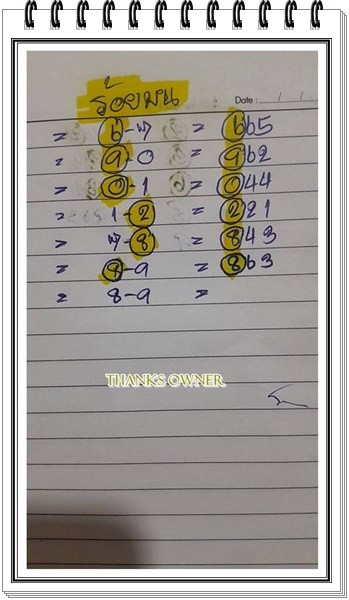 ร้อยบน
Date : / /
= 6-7 = 665
= 9-0 = 962
= 0-1 = 044
= 1-2 = 221
= 7-8 = 843
= 8-9 = 863
= 8-9 =
THANKS OWNER.